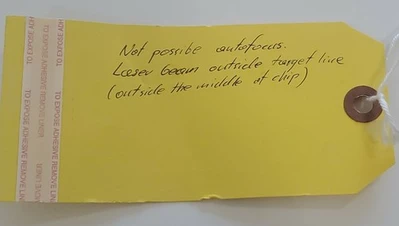 Not possible autofocus.
Laser beam outside target line
(outside the middle of chip)
TO EXPOSE ADHESIVE REMOVE LINER
TO EXPOSE ADHESIVE REMOVE LINER